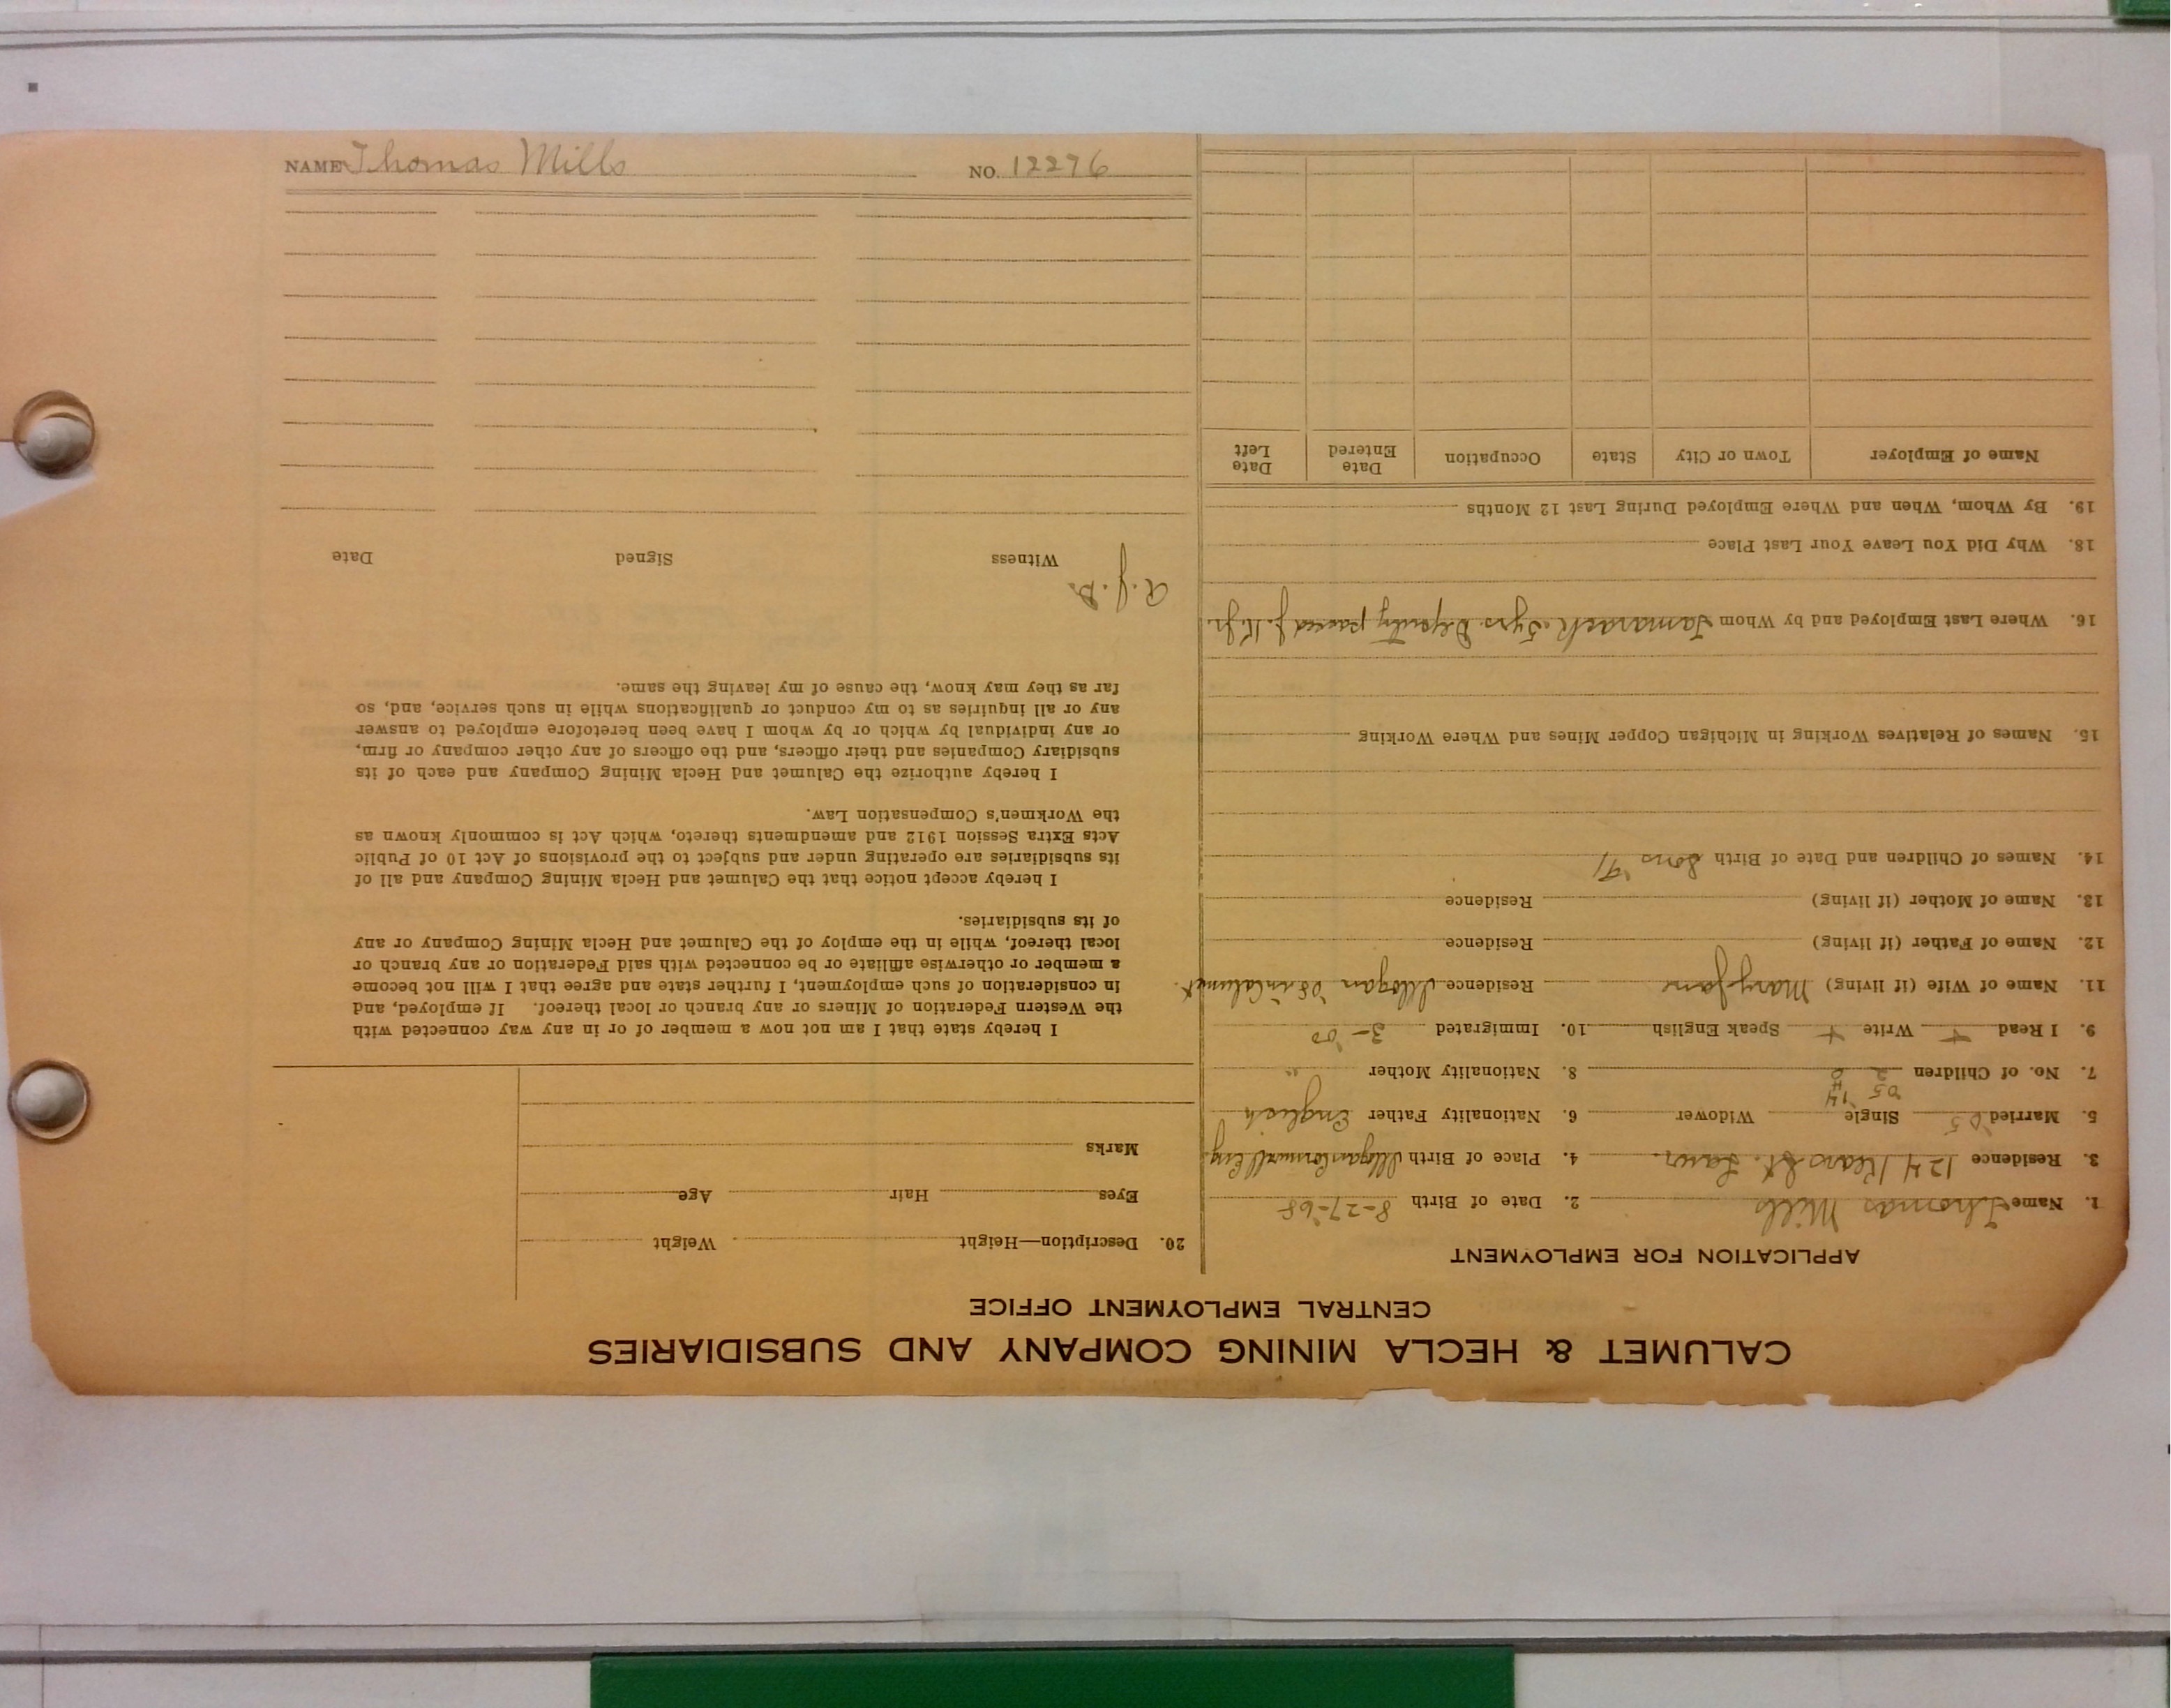 NAME Thomas Mills NO. 12276
CALUMET & HECLA MINING COMPANY AND SUBSIDIARIES
CENTRAL EMPLOYMENT OFFICE
APPLICATION FOR EMPLOYMENT
1. Name Thomas Mills 2. Date of Birth 8-27-'68
3. Residence 124 Kears St. Laur. 4. Place of Birth Illogan Cornwall Eng.
5. Married '05 Single Widower 6. Nationality Father English
'05 '14
7. No. of Children 2 8. Nationality Mother "
9. I Read + Write + Speak English 10. Immigrated 3-'00
11. Name of Wife (if living) Mary Jane Residence Illogan '08 in Calumet.
12. Name of Father (if living) Residence
13. Name of Mother (if living) Residence
14. Names of Children and Date of Birth Sons
15. Names of Relatives Working in Michigan Copper Mines and Where Working
16. Where Last Employed and by Whom Tamarack 5 yrs. passed J. K. Jr.
18. Why Did You Leave Your Last Place
19. By Whom, When and Where Employed During Last 12 Months
Name of Employer Town or City State Occupation Date Entered Date Left
20. Description—Height Weight
Eyes Hair Age
Marks
I hereby state that I am not now a member of or in any way connected with
the Western Federation of Miners or any branch or local thereof. If employed, and
in consideration of such employment, I further state and agree that I will not become
a member or otherwise affiliate or be connected with said Federation or any branch or
local thereof, while in the employ of the Calumet and Hecla Mining Company or any
of its subsidiaries.
I hereby accept notice that the Calumet and Hecla Mining Company and all of
its subsidiaries are operating under and subject to the provisions of Act 10 of Public
Acts Extra Session 1912 and amendments thereto, which Act is commonly known as
the Workmen's Compensation Law.
I hereby authorize the Calumet and Hecla Mining Company and each of its
subsidiary Companies and their officers, and the officers of any other company or firm,
or any individual by which or by whom I have been heretofore employed to answer
any or all inquiries as to my conduct or qualifications while in such service, and, so
far as they may know, the cause of my leaving the same.
Witness Signed Date